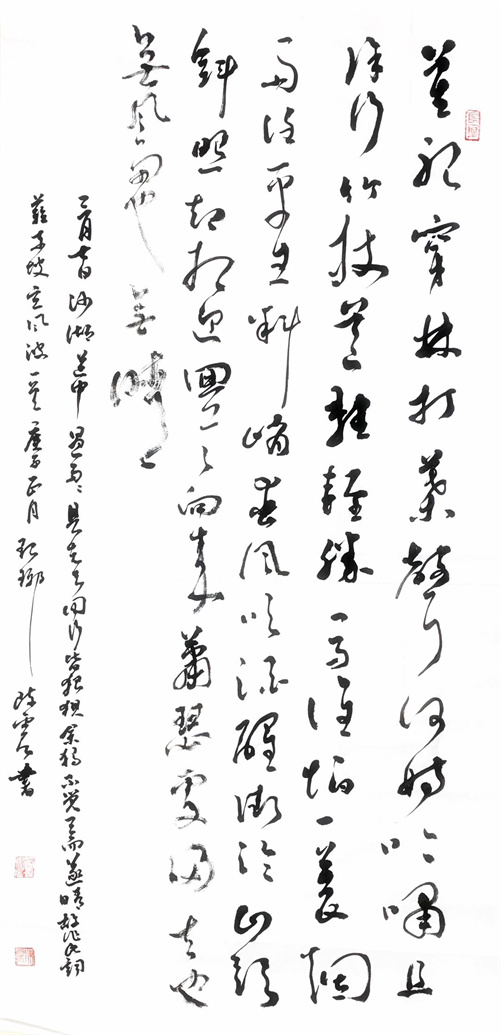 莫聽穿林打葉聲何妨吟嘯且
徐行竹杖芒鞋輕勝馬誰怕一蓑烟
雨任平生料峭春風吹酒醒微冷山頭
斜照却相迎回首向来蕭瑟處歸去也
無風雨也無晴
三月七日沙湖道中遇雨雨具先去同行皆狼狽余獨不覺已而遂晴故作此詞
蘇東坡定風波一首庚子正月琅琊書